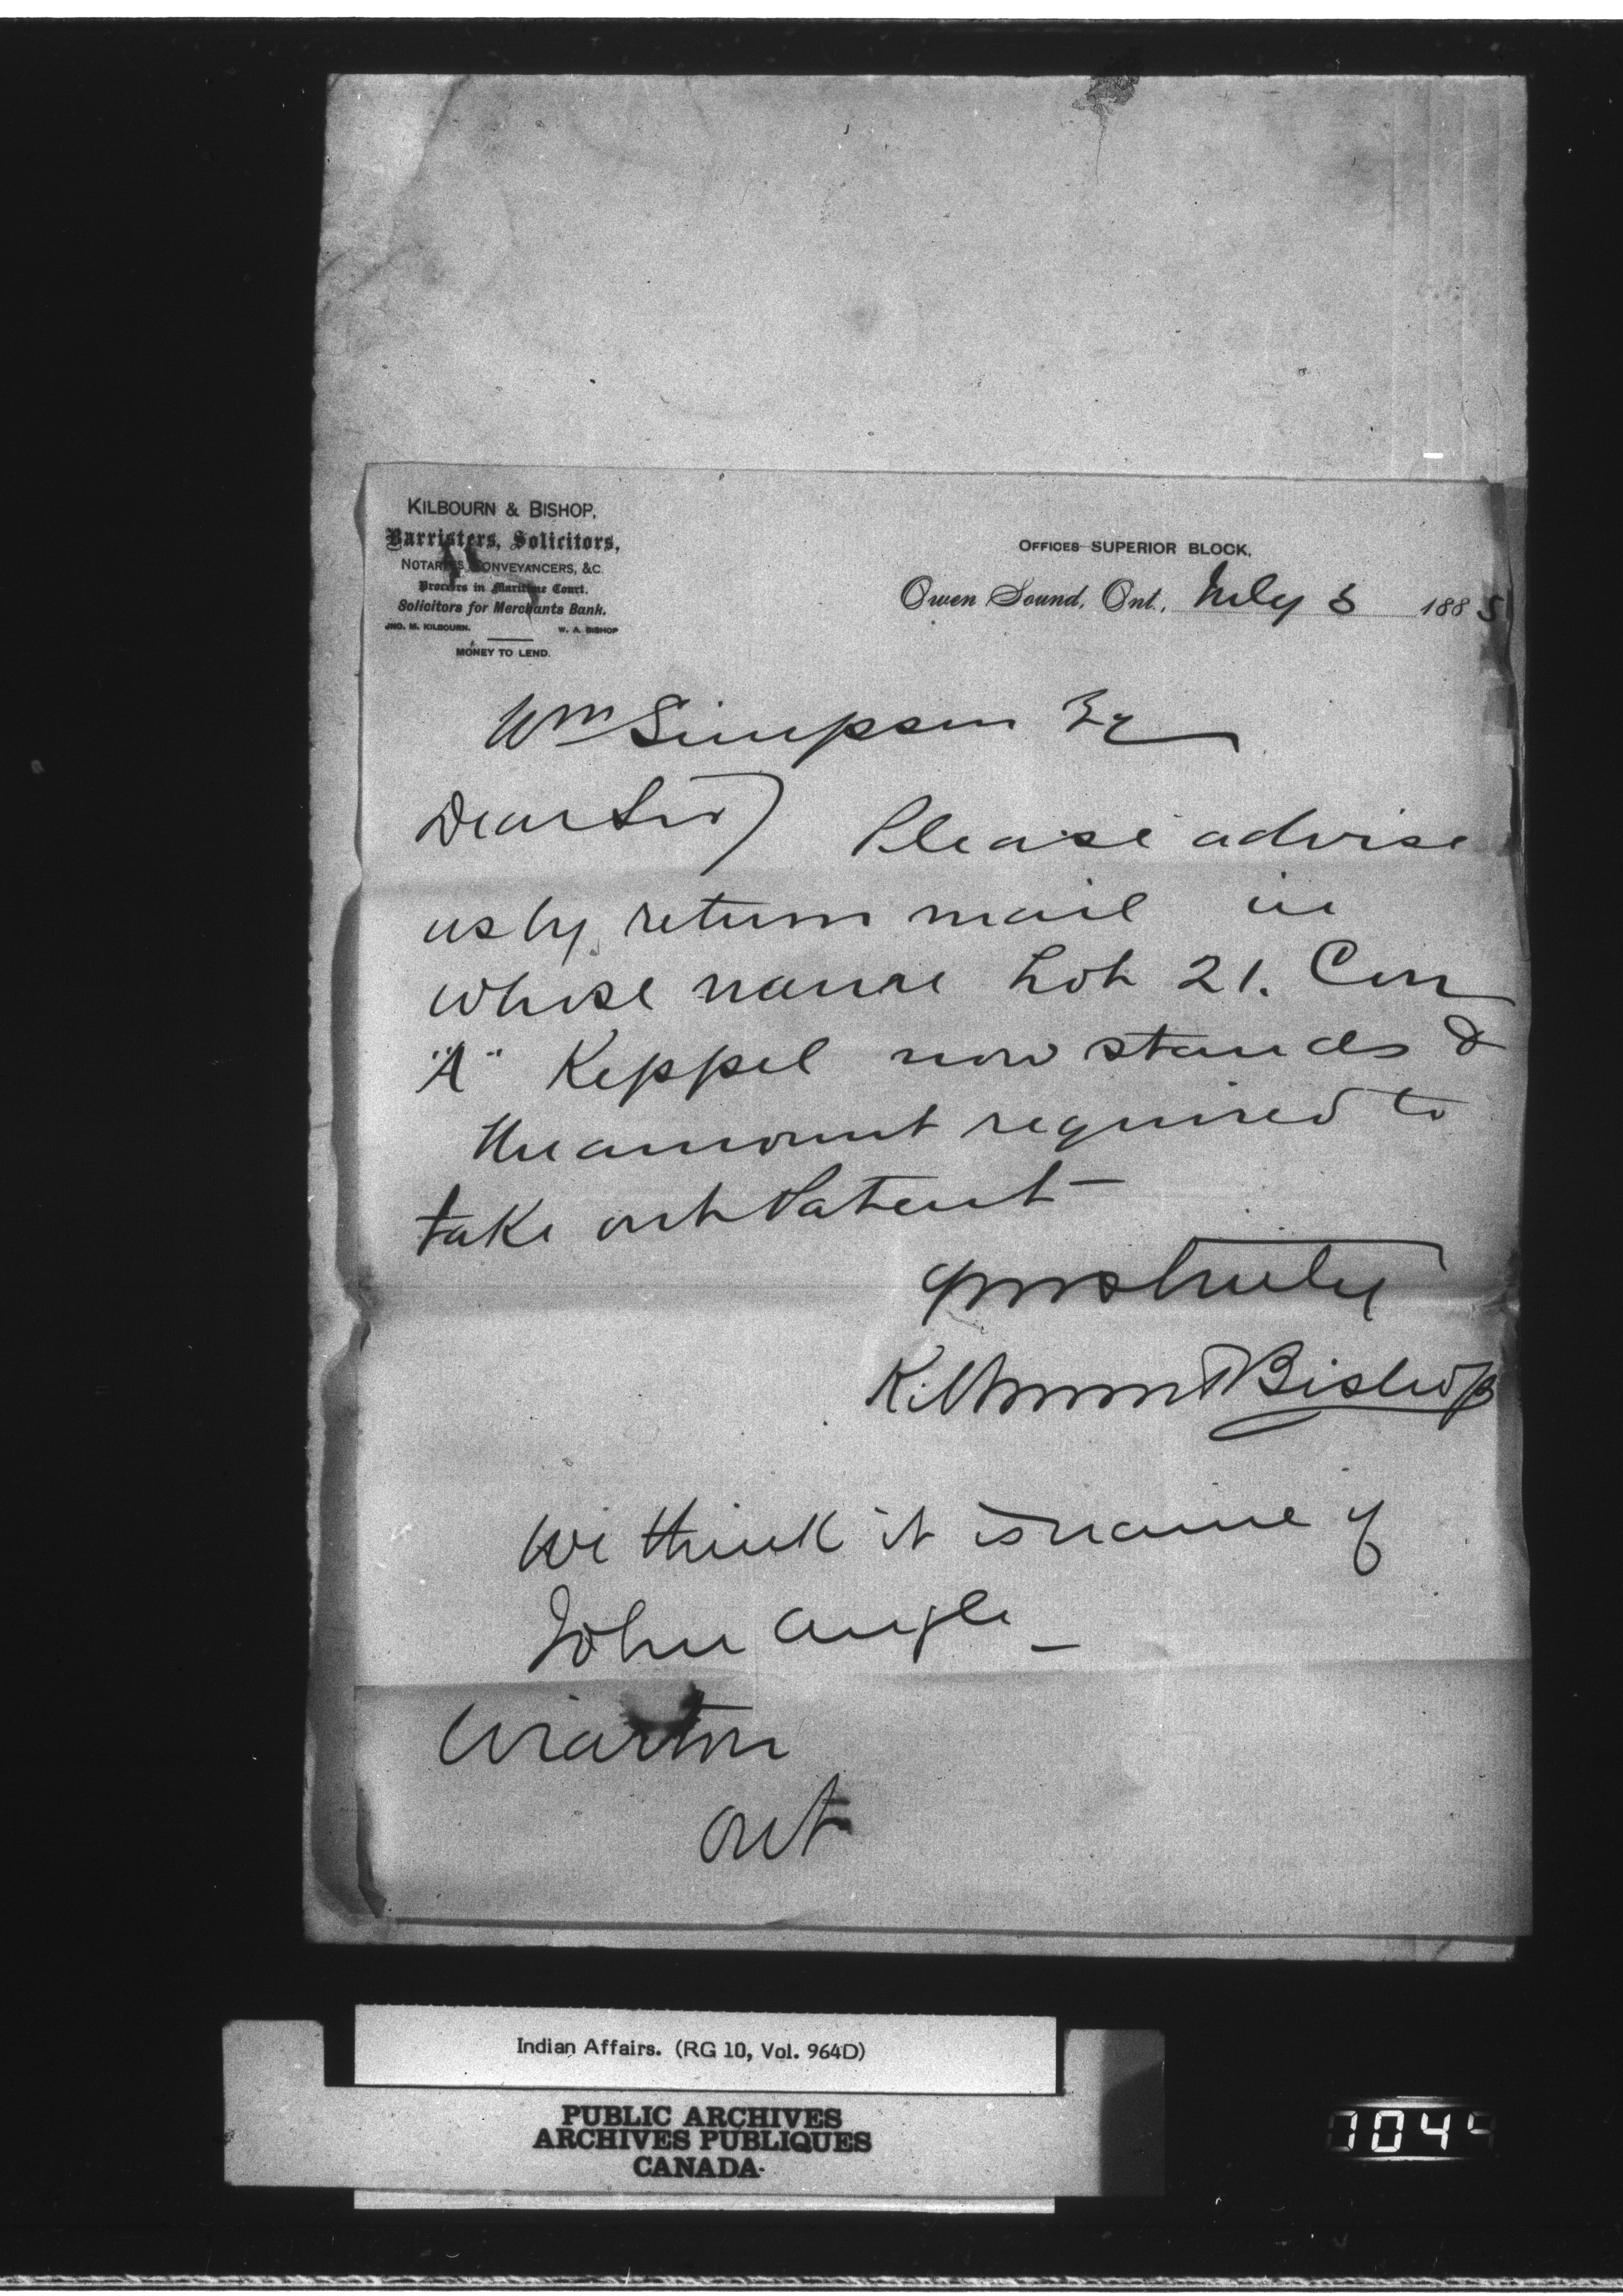 KILBOURN & BISHOP,
Barristers, Solicitors,
NOTARIES, CONVEYANCERS, &C.
Proctors in Maritime Court.
Solicitors for Merchants Bank.
JNO. M. KILBOURN. W. A. BISHOP
MONEY TO LEND.
OFFICES SUPERIOR BLOCK,
Owen Sound, Ont., July 3 1885
Wm Simpson Esq
Dear Sir) Please advise
us by return mail in
whose name Lot 21. Con
"A" Keppel now stands &
the amount required to
take out Patent—
Yours truly
Kilbourn & Bishop
We think it is name of
John Angle_
Wiarton
Ont
Indian Affairs. (RG 10, Vol. 964D)
PUBLIC ARCHIVES
ARCHIVES PUBLIQUES
CANADA
1044